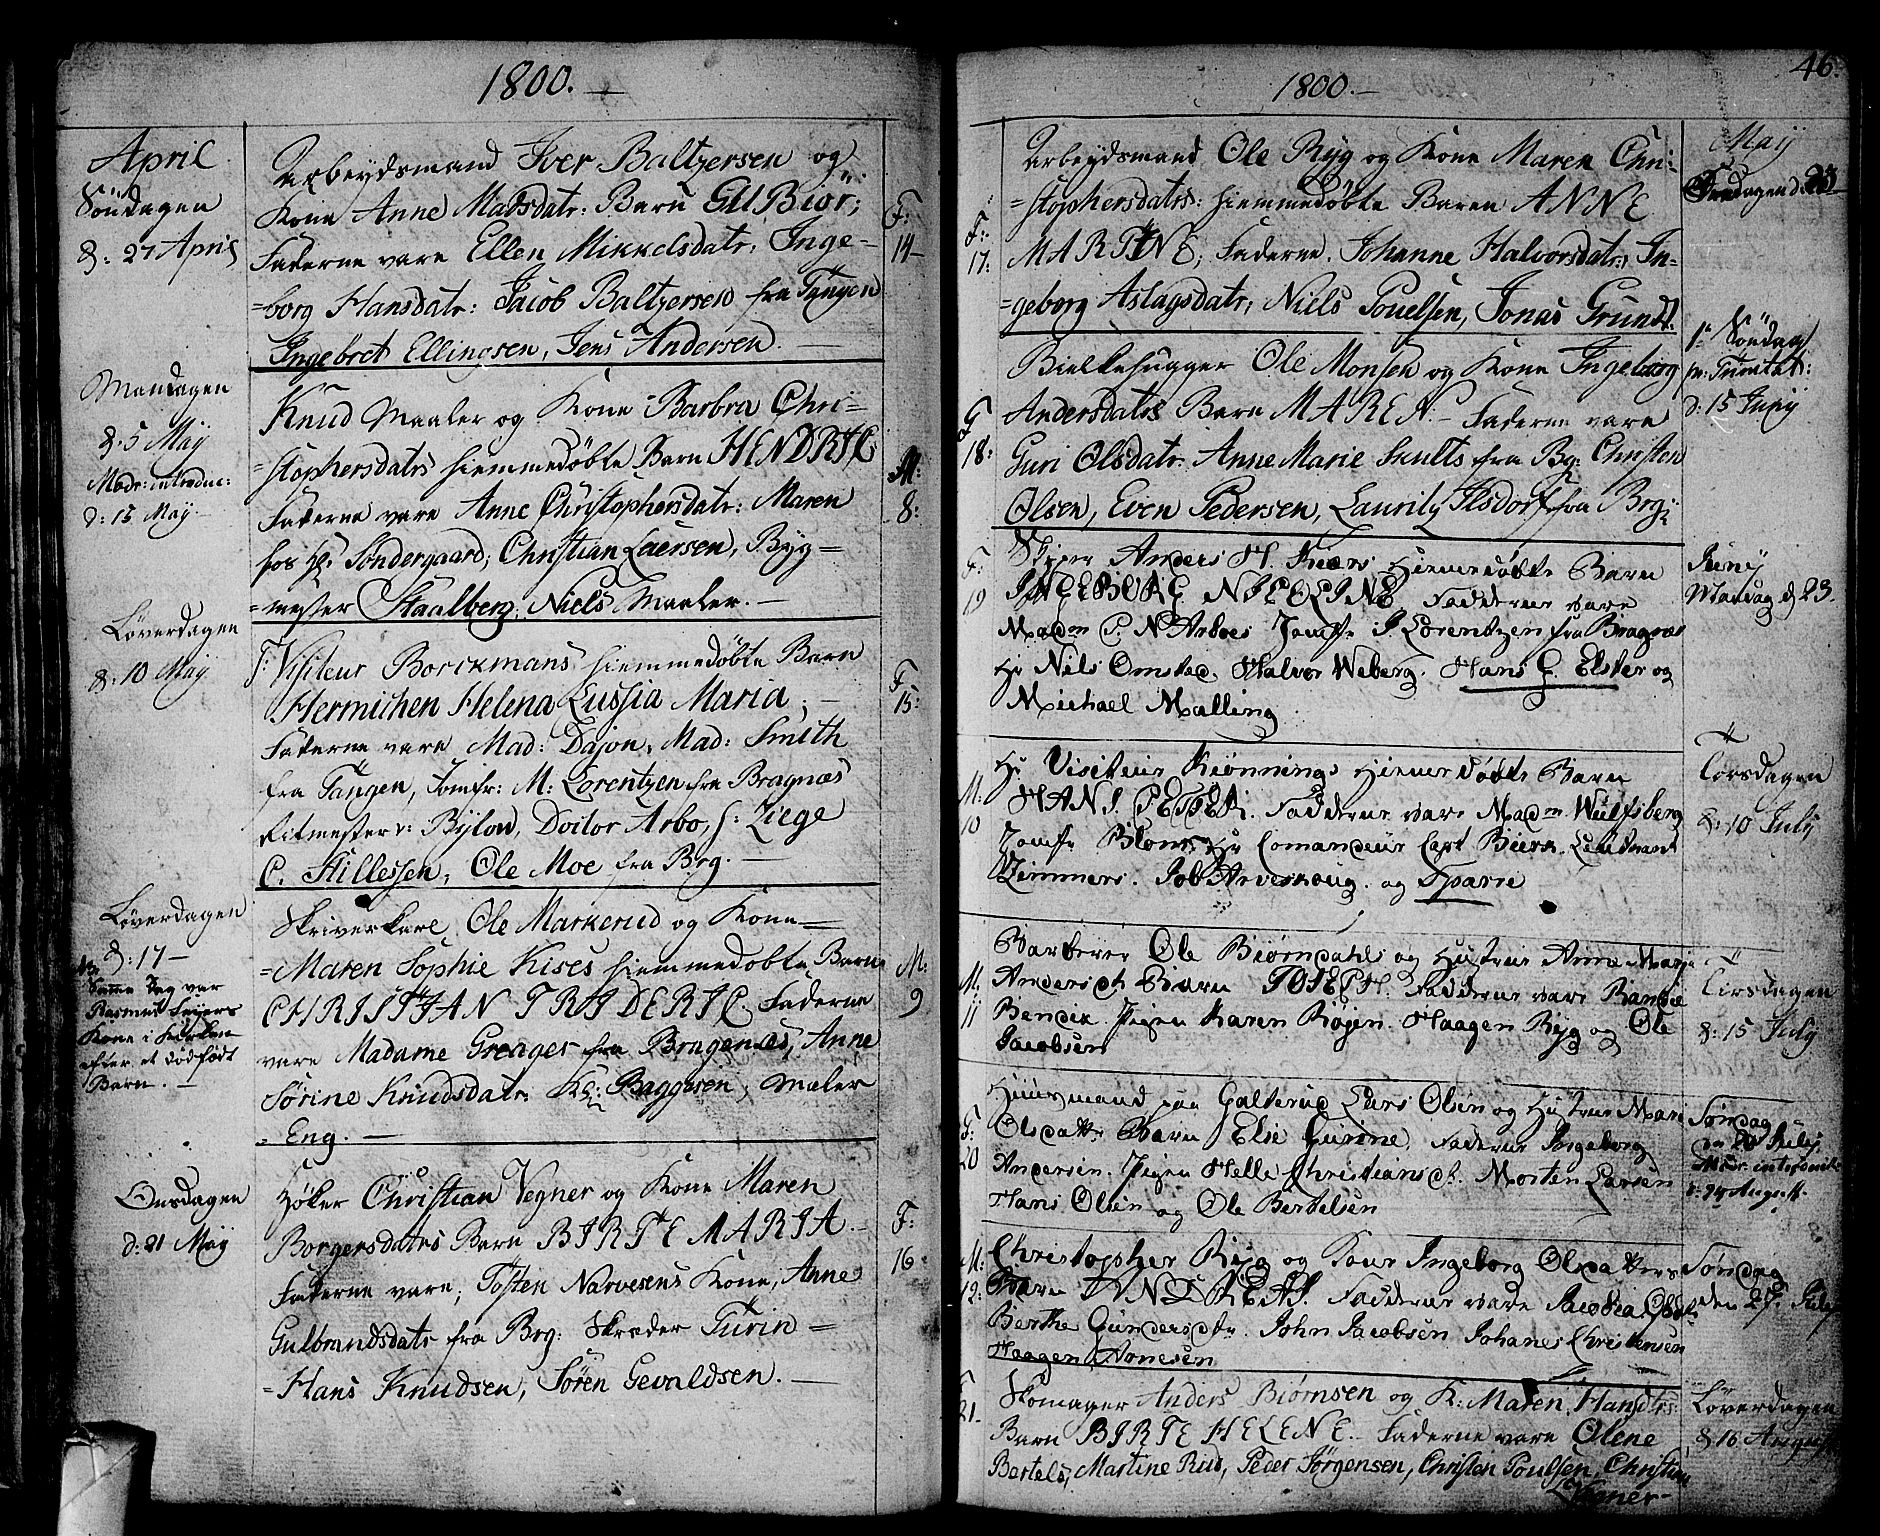 1800.
April
Söndagen
d: 27 April
Arbeydsmand Iver Baltzersen og
Kone Anne Matsdatr: Barn Ell Biör;
Faderne vare Ellen Mikkelsdatr, Inge-
=borg Hansdatr: Jacob Baltzersen fra Tangen
Ingebret Ellingsen, Jens Andersen.
F:
14
Mandagen
d. 5 May
Modr: introduc:
d: 15 May
Knud Maaler og Kone Barbra Chri-
=stophersdatrs hiemmedøbte Barn HENDRIC
Faderne vare Anne Christophersdatr: Maren
hos Hr Søndergaard, Christian Laersen, Byg=
=mester Staalberg, Niels Maaler.
M:
8:
Løverdagen
d: 10 May
T: Visiteur Borckmans hiemmedøbte Barn
Hermichen Helena Lussia Maria;
Faderne vare Mad: Dajon, Mad: Smith
fra Tangen, Jomfr: M: Lorentzen fra Bragnæs
Ritmester v: Bylow, Doctor Arbo, H: Ziege
C. Hillessen, Ole Moe fra Brg.
F
15:
Løverdagen
d: 17
Samme Dag var
Rasmus Seyers
Kone i Kirken
efter et dødfødt
Barn.
Skriverkarl Ole Markerud og Kone
=Maren Sophie Kises hiemmedøbte Barn
CHRISTIAN FRIDERIC, Faderne
vare Madame Grenger fra Bragernæs, Anne
Sørine Knudsdatr. Kl: Baggesen, Maler
=Eng.
M:
9
Onsdagen
d: 21 May
Høker Christian Vegner og Kone Maren
Borgersdatrs Barn BIRTE MARIA.
Faderne vare; Tosten Narvesens Kone, Anne
Gulbrandsdatr fra Brg: Skræder Turin=
=Hans Knudsen, Sören Gevaldsen.
F:
16
46.
1800.
F:
17:
Arbeydsmand Ole Ryg og Kone Maren Chri:
=stophersdatrs: hiemmedøbte Baren ANNE
MARTINE; Faderne. Johanne Halvorsdatr; In-
=geborg Aslagsdatr; Niels Pouelsen, Jonas Grundt.
May
Fredagen d: 23
18:
Bielkehugger Ole Monsen og Kone Ingeborg
Andersdatrs Barn MAREN. Faderne vare
Guri Olsdatr. Anne Marie Skults fra By: Christen
Olsen, Even Pedersen, Laurity Ilsdorf fra Brg:
1te Söndag
pr: Trinitat:
d: 15 Juny
F:
19
Skiper Anders H. Kiærs Hiemedøbte Barn
INGEBORG NICOLINE Fadderne vare
Madm P. N Arboes Jomfr J. Lorentzen fra Bragnæs
Hr Nils Omstad. Halvor Weberg. Hans G. Elster og
Michael Malling
Juny
Mandag d 23.
M:
10
Hr Visiteur Kiønnings Hiemedøbte Barn
HANS PETER. Fadderne vare Madm Wulfsberg
Jomfr Blom, Hr Comandeur Capt Bierk. Leutnant
Zimmers. Job Arveskoug. og Sparre
Torsdagen
d: 10 July
M:
11
Barberer Ole Biørndahls og Hustrue Anne Marie
Anderich Barn JOSEPH. Fadderne vare
Bendix. Pigen Karen Røjen. Haagen Ryg og Ole
Jacobsen
Tirsdagen
d: 15 July
F:
20
Huusmand paa Galterud Lars Olsen og Hustrue Mari
Olsdatter Barn Else Gurine, Fadderne Ingeborg
Andersen. Pigen Helle Christiansd. Morten Larsen
Hans Olsen og Ole Bertelsen
Søndag
den 20 July
Moder: introduc:
d: 24 August.
M:
12:
Christopher Ryg og Kone Ingeborg Olsdatters
Barn ANDREAS. Fadderne vare
Berthe Gundersdtr. John Jacobsen Johanes Christensen
Haagen Arnesen
Søndag
den 27. July
21.
Skomager Anders Biørnsen og K: Maren Hansdtrs
Barn BIRTE HELENE. Faderne vare Olene
Bertels, Martine Rud, Peder Jörgensen, Christen Poulsen, Christian
Wegner
Løverdagen
d 16 August